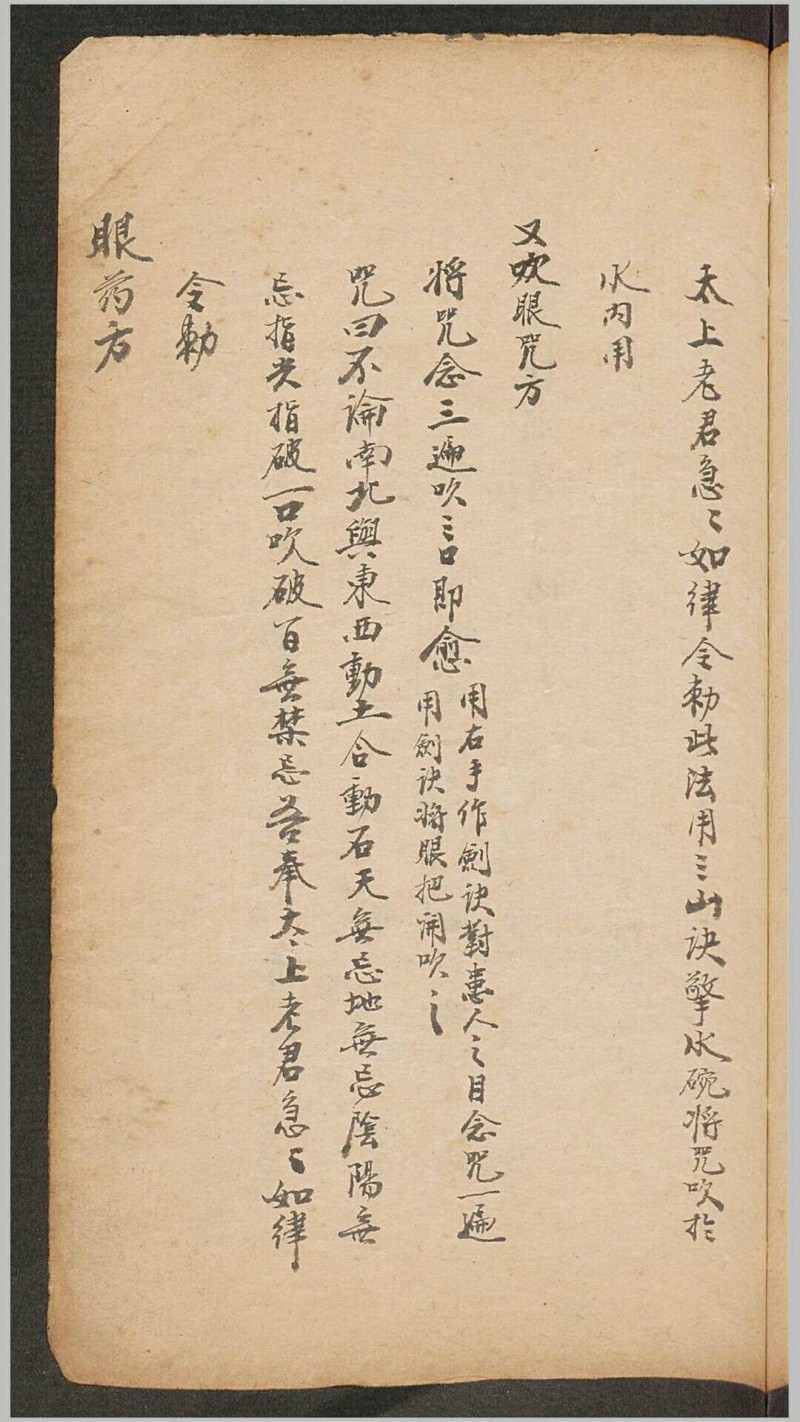 太上老君急〻如律令勅此法用三山诀擎水碗将咒吹於
水内用
又吹眼咒方
将咒念三遍吹三口即愈
用右手作劍诀對患人之目念咒一遍
用劍诀将眼把開吹之
咒曰不論南北與東西動土合動石天無忌地無忌陰陽無
忌指尖指破一口吹破百無禁忌吾奉太上老君急〻如律
令勅
眼药方